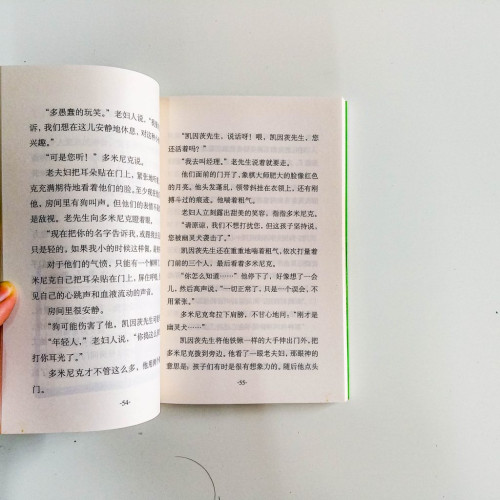 “多愚蠢的玩笑。”老妇人说，“
诉，我们想在这儿安静地休息，对这种
兴趣。”
“可是您听！”多米尼克说。
老夫妇把耳朵贴在门上，紧张地听
克充满期待地看着他们的脸。至少现
他，房间里有狗叫声。但他们的
是敌视。老先生向多米尼克瞪眼。
“现在把你的名字告诉我，或
只是轻的。如果我小的时候这样
对于他们的气愤，只能有一个
米尼克自己把耳朵贴在门上，屏住呼吸，
见自己的心跳声和血液流动的声音。
房间里很安静。
“狗可能伤害了他，凯因茨先生可
“年轻人，”老妇人说，“你
打你耳光了。”
多米尼克才不管这么多，他
门。
-54-
“凯因茨先生，说话呀！喂，凯因茨先生，您
还活着吗？”
“我去叫经理。”老先生说着就要走。
他们面前的门开了，象棋大师肥大的脸像红色
的月亮。他头发蓬乱，领带斜挂在衣领上，还有刚
搏斗过的痕迹。他喘着粗气。
老妇人立刻露出甜美的笑容，指指多米尼克。
“请原谅，我们不想打扰您，但这孩子坚持说，
您被幽灵犬袭击了。”
凯因茨先生还在重重地喘着粗气，依次打量着
门前的三个人。最后看着多米尼克。
“你怎么知道……”他停下了，好像想了一会
儿，然后高声说。“一切正常了，只是一个误会，不
用紧张。”
多米尼克耷拉下肩膀，不甘心地问：“刚才是
幽灵犬……”
凯因茨先生将他铁锹一样的大手伸出门外，把
多米尼克拨到旁边。他看了一眼老夫妇，那眼神的
意思是：孩子们有时是很有想象力的。随后他点头
-55-